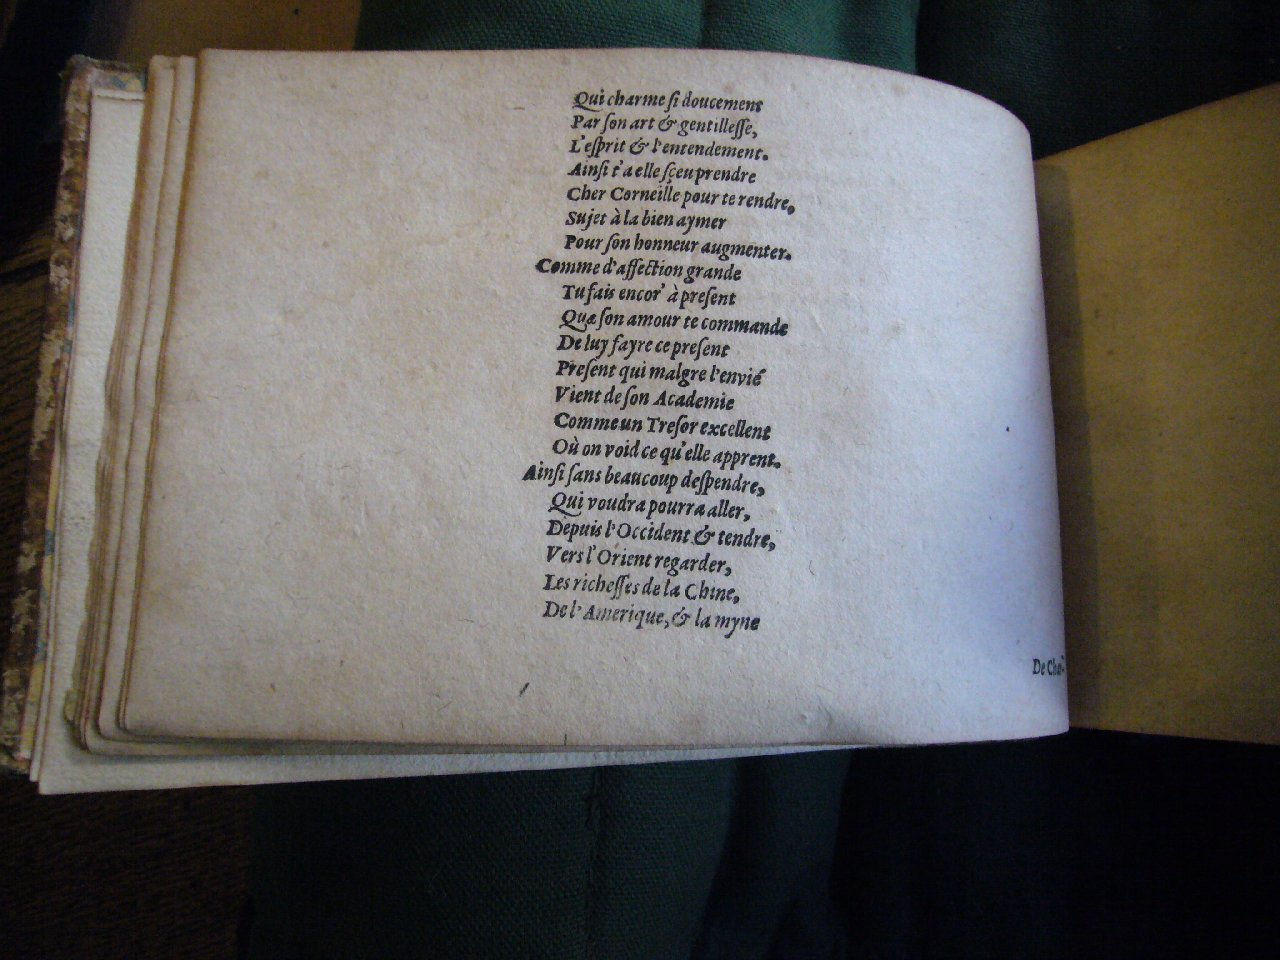 Qui charme ſi doucement
Par ſon art & gentilleſſe,
L'eſprit & l'entendement.
Ainſi t'a elle ſçeu prendre
Cher Corneille pour te rendre,
Sujet à la bien aymer
Pour ſon honneur augmenter.
Comme d'affection grande
Tu fais encor' à preſent
Quæ ſon amour te commande
De luy fayre ce preſent
Preſent qui malgre l'envié
Vient de ſon Academie
Comme un Treſor excellent
Où on void ce qu'elle apprent.
Ainſi ſans beaucoup deſpendre,
Qui voudra pourra aller,
Depuis l'Occident & tendre,
Vers l'Orient regarder,
Les richeſſes de la Chine,
De l'Amerique, & la myne
De